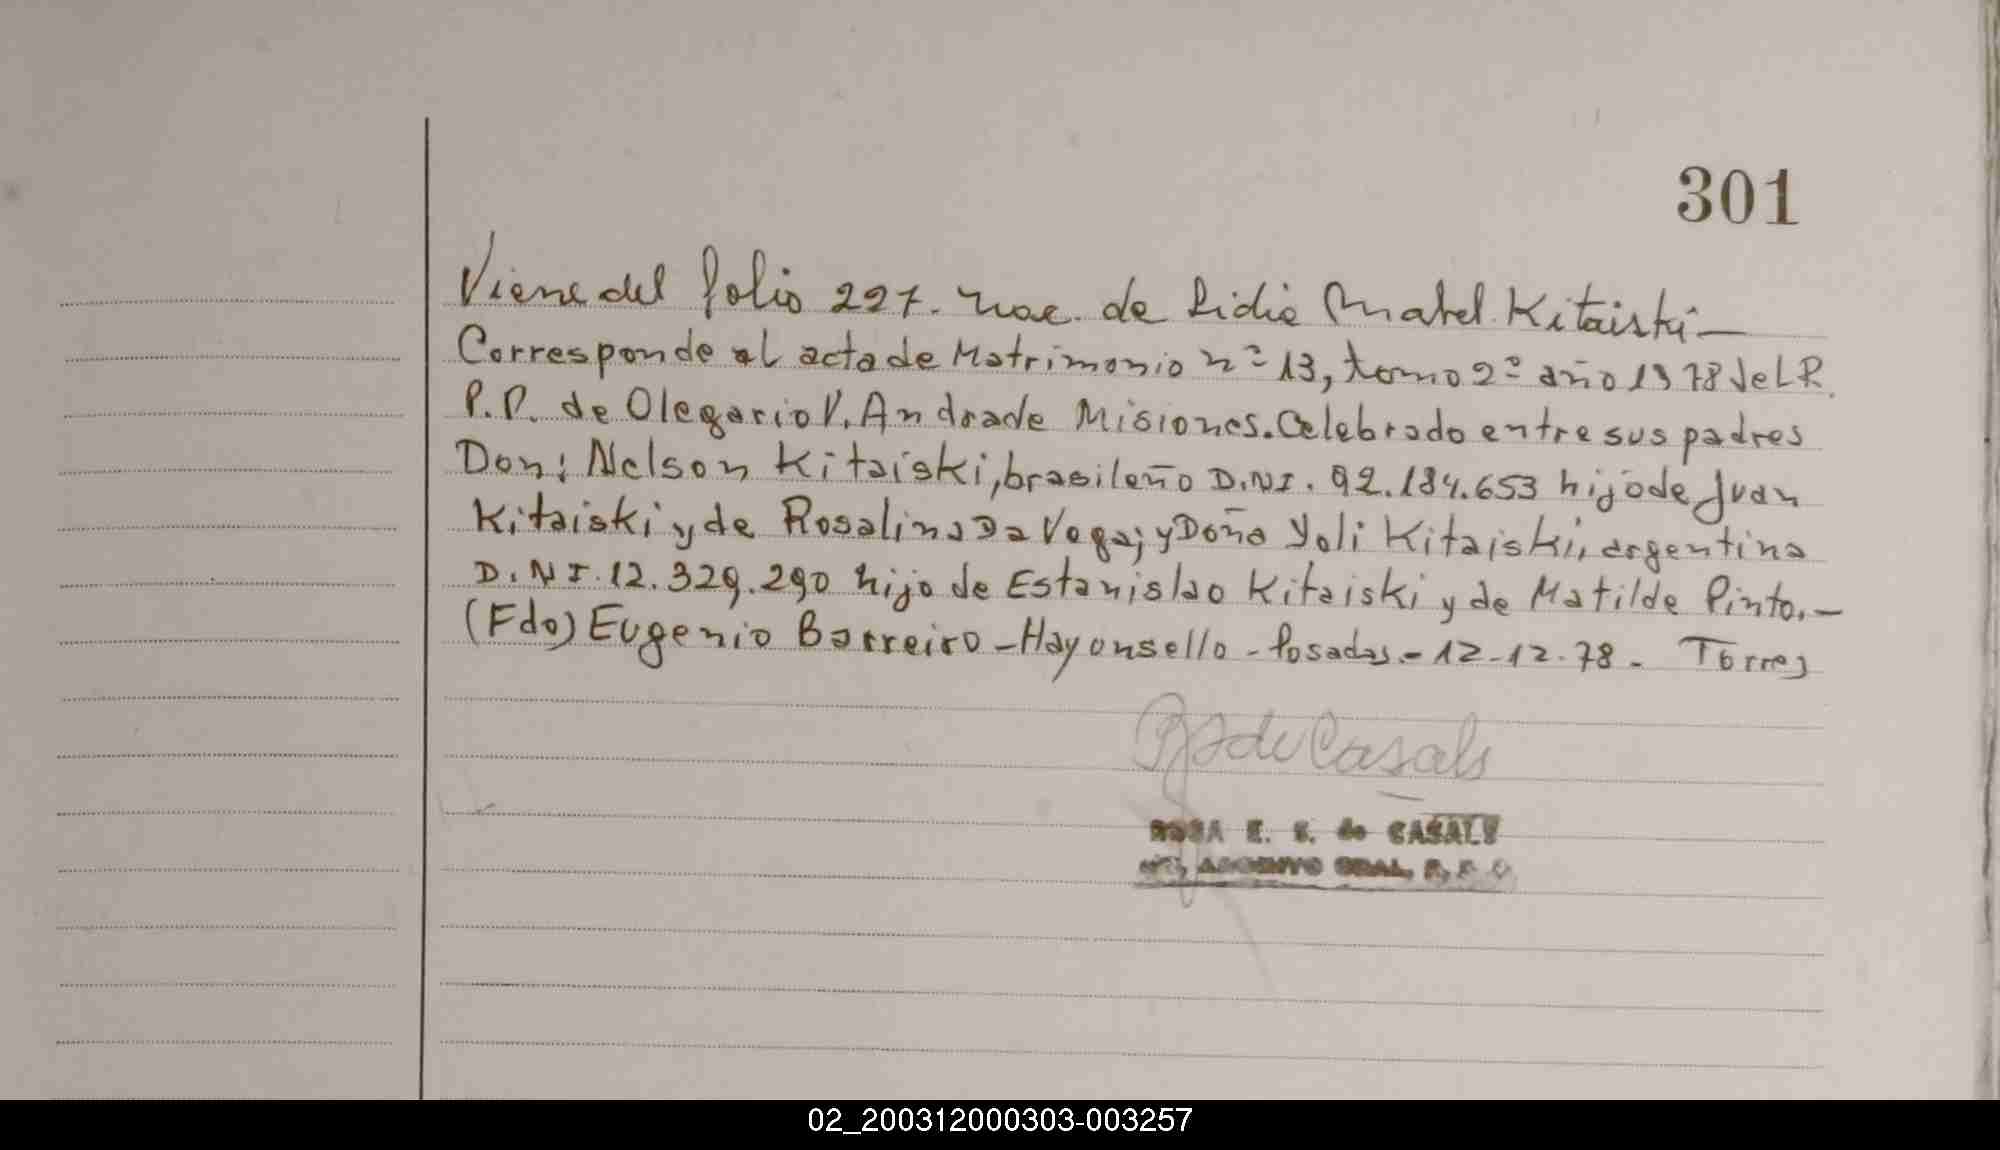 301
Viene del folio 227. nac. de Lidia Mabel Kitaiski—
Corresponde al acta de Matrimonio nº 13, tomo 2º año 1978 del R.
P.P. de Olegario V. Andrade Misiones. Celebrado entre sus padres
Don: Nelson Kitaiski, brasileño D.NI. 92.184.653 hijo de Juan
Kitaiski y de Rosalina Da Vega; y Doña Yoli Kitaiski, argentina
D.NI. 12.329.290 hijo de Estanislao Kitaiski y de Matilde Pinto.—
(Fdo) Eugenio Barreiro - Hay un sello - Posadas.- 12-12-78 - Torres
de Casals
ROSA E. S. de CASALS
ARCHIVO GRAL.
02_200312000303-003257